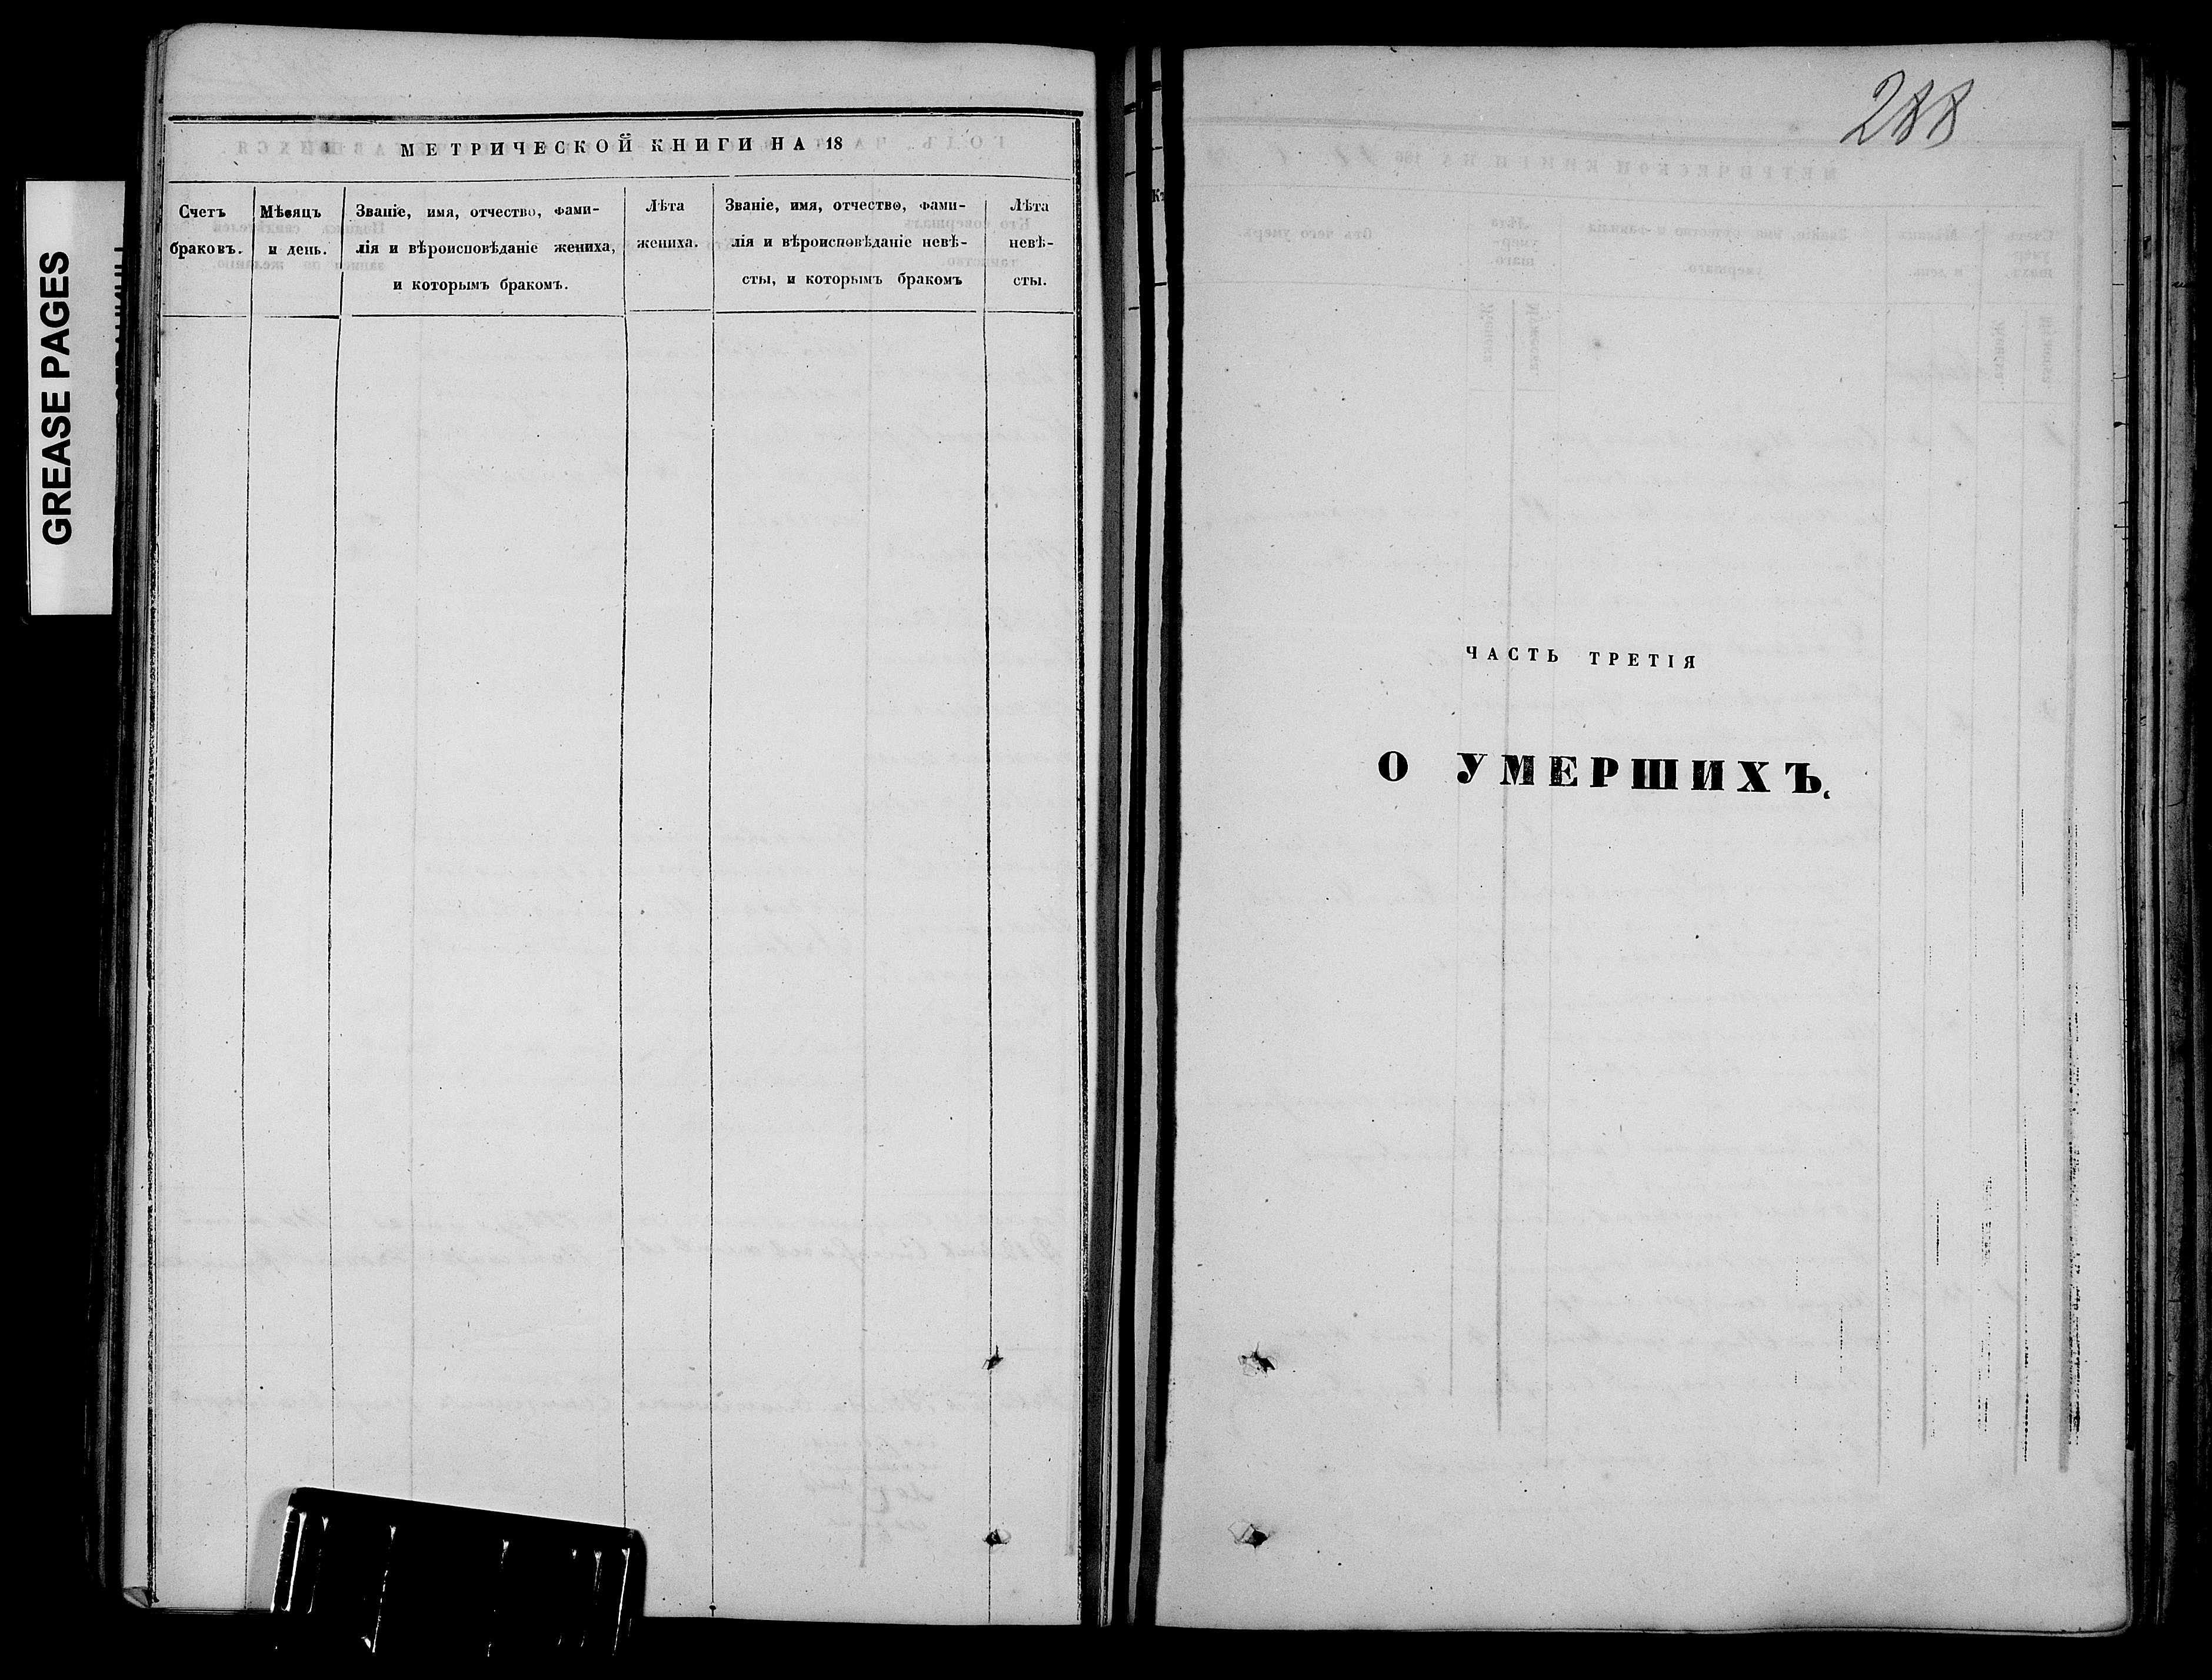 GREASE PAGES
МЕТРИЧЕСКОЙ КНИГИ НА 18
Счетъ браковъ.
Мѣсяцъ и день.
Званіе, имя, отчество, фами-
лія и вѣроисповѣданіе жениха,
и которымъ бракомъ.
Лѣта
жениха.
Званіе, имя, отчество, фами-
лія и вѣроисповѣданіе невѣ-
сты, и которымъ бракомъ
Лѣта
невѣ-
сты.
288
ЧАСТЬ ТРЕТІЯ
О УМЕРШИХЪ.